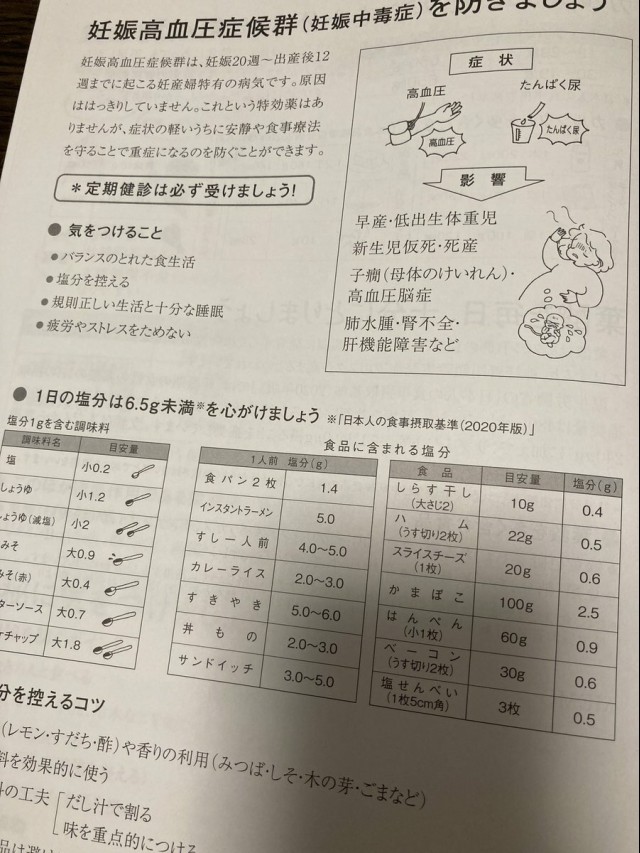 妊娠高血圧症候群(妊娠中毒症)を防ぎましょう
妊娠高血圧症候群は、妊娠20週～出産後12
週までに起こる妊産婦特有の病気です。原因
ははっきりしていません。これという特効薬はあ
りませんが、症状の軽いうちに安静や食事療法
を守ることで重症になるのを防ぐことができます。
＊定期健診は必ず受けましょう!
● 気をつけること
● バランスのとれた食生活
● 塩分を控える
● 規則正しい生活と十分な睡眠
● 疲労やストレスをためない
症状
高血圧
たんぱく尿
高血圧
たんぱく尿
影響
早産・低出生体重児
新生児仮死・死産
子癇(母体のけいれん)・
高血圧脳症
肺水腫・腎不全・
肝機能障害など
● 1日の塩分は6.5g未満※を心がけましょう ※「日本人の食事摂取基準(2020年版)」
塩分1gを含む調味料
調味料名 目安量
塩 小0.2
しょうゆ 小1.2
しょうゆ(減塩) 小2
みそ 大0.9
みそ(赤) 大0.4
ターソース 大0.7
ケチャップ 大1.8
食品に含まれる塩分
1人前 塩分(g)
食パン2枚 1.4
インスタントラーメン 5.0
すし一人前 4.0～5.0
カレーライス 2.0～3.0
すきやき 5.0～6.0
丼もの 2.0～3.0
サンドイッチ 3.0～5.0
食品 目安量 塩分(g)
しらす干し
(大さじ2) 10g 0.4
ハム
(うす切り2枚) 22g 0.5
スライスチーズ
(1枚) 20g 0.6
かまぼこ 100g 2.5
はんぺん
(小1枚) 60g 0.9
ベーコン
(うす切り2枚) 30g 0.6
塩せんべい
(1枚5cm角) 3枚 0.5
分を控えるコツ
(レモン・すだち・酢)や香りの利用(みつば・しそ・木の芽・ごまなど)
料を効果的に使う
の工夫 だし汁で割る
味を重点的につける